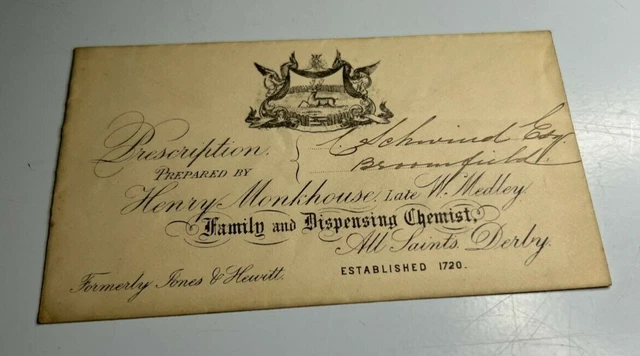 Prescription. { C Schwind Esq.
Broomfield.
PREPARED BY
Henry Monkhouse, Late W. Medley,
Family and Dispensing Chemist,
All Saints, Derby.
Formerly Jones & Hewitt.
ESTABLISHED 1720.